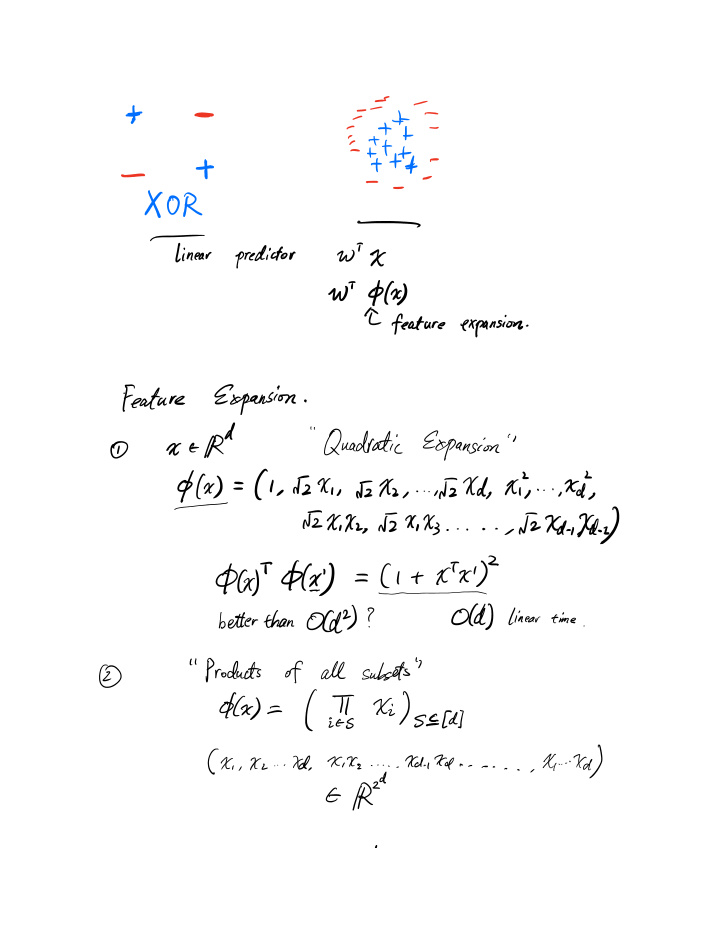 XOR
linear predictor wᵀ x
wᵀ ϕ(x)
↑ feature expansion.
Feature Expansion.
① x ∈ ℝᵈ "Quadratic Expansion"
ϕ(x) = (1, √2 x₁, √2 x₂, ..., √2 x_d, x₁², ..., x_d²,
√2 x₁x₂, √2 x₁x₃ ......, √2 x_{d-1} x_{d-2})
ϕ(x)ᵀ ϕ(x') = (1 + xᵀx')²
better than O(d²)? O(d) linear time.
② "Products of all subsets"
ϕ(x) = ( ∏_{i∈S} x_i )_{S⊆[d]}
(x₁, x₂ ... x_d, x₁x₂ ..... x_{d-1} x_d ........, x₁...x_d)
∈ ℝ^{2^d}